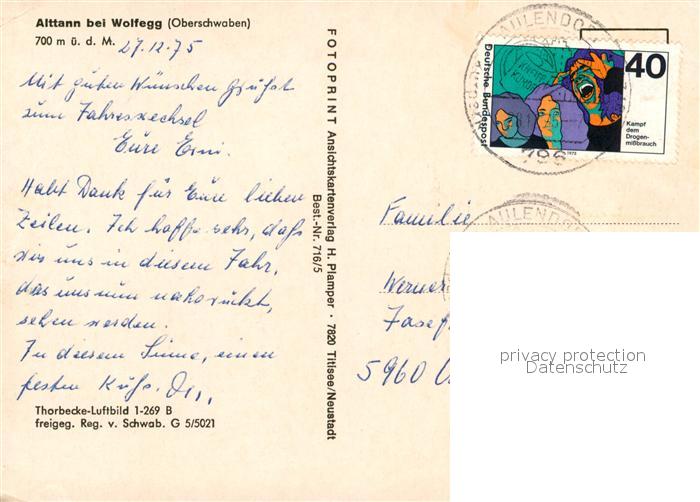 Alttann bei Wolfegg (Oberschwaben)
700 m ü. d. M.
27.12.75
Mit guten Wünschen grüßt
zum Jahreswechsel
Eure Erni.
Habt Dank für Eure lieben
Zeilen. Ich hoffe sehr, daß
wir uns in diesem Jahr,
das uns nun nahorückt,
sehen werden.
In diesem Sinne, einen
festen Kuß.
Thorbecke-Luftbild 1-269 B
freigeg. Reg. v. Schwab. G 5/5021
FOTOPRINT Ansichtskartenverlag H. Plamper · 7820 Titisee/Neustadt
Best.-Nr. 716/5
AULENDO
796
Deutsche Bundespost
40
Kampf
dem
Drogen-
mißbrauch
1975
AULENDO
Familie
Werner
Josef
5960
privacy protection
Datenschutz